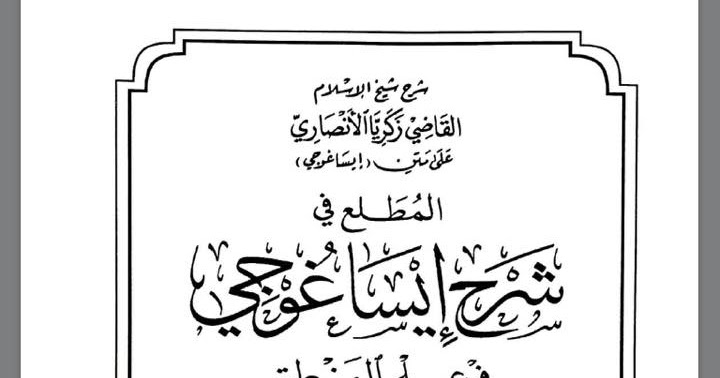 شرح شيخ الإسلام
القَاضِيْ زَكَرِيَّا الأَنْصَارِيّ
عَلَىٰ مَتنِ (إيسَاغوجي)
المُطَلع في
شَرْح إِيْسَاغُوْجِي